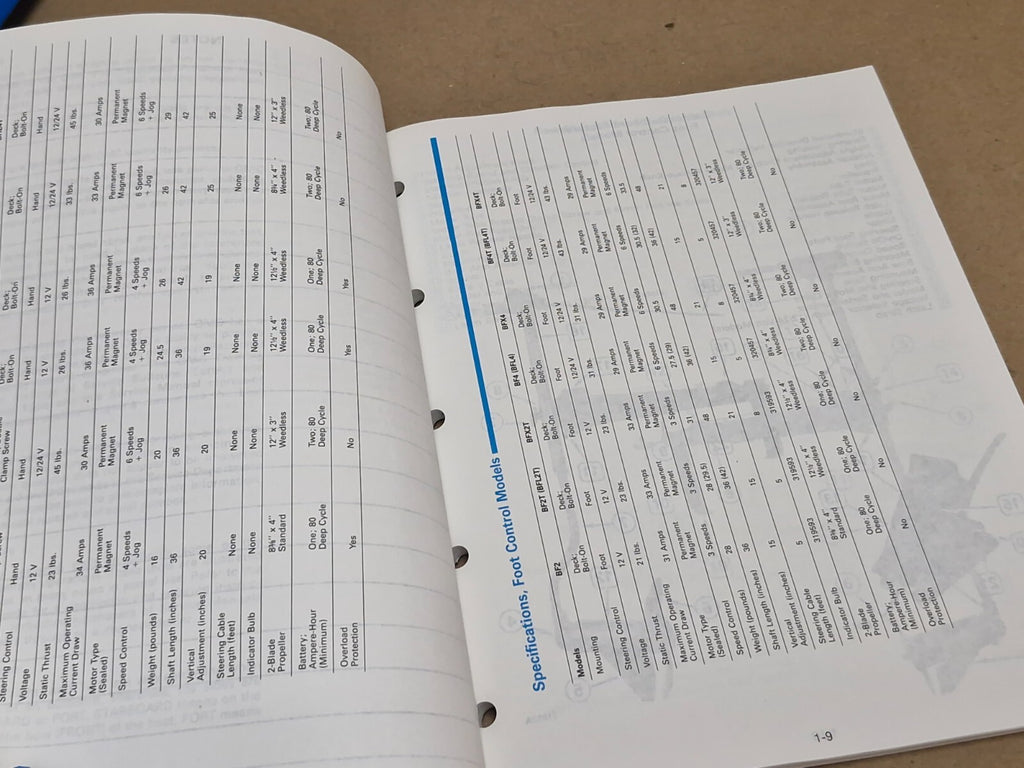 Deck;
Bolt-On
Clamp Screw
Bolt-On
Deck;
Bolt-On
Deck;
Bolt-On
Deck;
Bolt-On
Steering Control Hand Hand Hand Hand Hand Hand
Voltage 12 V 12/24 V 12 V 12 V 12/24 V 12/24 V
Static Thrust 23 lbs. 45 lbs. 26 lbs. 26 lbs. 33 lbs. 45 lbs.
Maximum Operating
Current Draw 34 Amps 30 Amps 36 Amps 36 Amps 33 Amps 30 Amps
Motor Type Permanent Permanent Permanent Permanent Permanent Permanent
(Sealed) Magnet Magnet Magnet Magnet Magnet Magnet
Speed Control 4 Speeds 6 Speeds 4 Speeds 4 Speeds 6 Speeds 6 Speeds
+ Jog + Jog + Jog + Jog + Jog + Jog
Weight (pounds) 16 20 24.5 26 26 29
Shaft Length (inches) 36 36 36 42 42 42
Vertical
Adjustment (inches) 20 20 19 19 25 25
Steering Cable
Length (feet) None None None None None None
Indicator Bulb None None None None None None
2-Blade 8¾" x 4" 12" x 3" 12½" x 4" 12½" x 4" 8¾" x 4" 12" x 3"
Propeller Standard Weedless Weedless Weedless Weedless Weedless
Battery: One; 80 Two; 80 One; 80 One; 80 Two; 80 Two; 80
Ampere-Hour Deep Cycle Deep Cycle Deep Cycle Deep Cycle Deep Cycle Deep Cycle
(Minimum)
Overload Yes No Yes Yes No No
Protection
Specifications, Foot Control Models
Models BF2 BF2T (BFL2T) BFX2T BF4 (BFL4) BFX4 BF4T (BFL4T) BFX4T
Mounting Deck; Deck; Deck; Deck; Deck; Deck; Deck;
Bolt-On Bolt-On Bolt-On Bolt-On Bolt-On Bolt-On Bolt-On
Steering Control Foot Foot Foot Foot Foot Foot Foot
Voltage 12 V 12 V 12 V 12/24 V 12/24 V 12/24 V 12/24 V
Static Thrust 21 lbs. 23 lbs. 23 lbs. 31 lbs. 31 lbs. 43 lbs. 43 lbs.
Maximum Operating
Current Draw 31 Amps 33 Amps 33 Amps 29 Amps 29 Amps 29 Amps 29 Amps
Motor Type Permanent Permanent Permanent Permanent Permanent Permanent Permanent
(Sealed) Magnet Magnet Magnet Magnet Magnet Magnet Magnet
Speed Control 3 Speeds 3 Speeds 3 Speeds 6 Speeds 6 Speeds 6 Speeds 6 Speeds
Weight (pounds) 28 28 (29.5) 31 27.5 (29) 30.5 30.5 (32) 33.5
Shaft Length (inches) 36 36 (42) 48 36 (42) 48 36 (42) 48
Vertical
Adjustment (inches) 15 15 21 15 21 15 21
Steering Cable
Length (feet) 5 5 8 5 8 5 8
Indicator Bulb 319593 319593 319593 320457 320457 320457 320457
2-Blade 8¾" x 4" 12½" x 4" 12½" x 4" 8¾" x 4" 8¾" x 4" 12" x 3" 12" x 3"
Propeller Standard Weedless Weedless Weedless Weedless Weedless Weedless
Battery: One; 80 One; 80 One; 80 Two; 80 Two; 80 Two; 80 Two; 80
Ampere-Hour Deep Cycle Deep Cycle Deep Cycle Deep Cycle Deep Cycle Deep Cycle Deep Cycle
(Minimum)
Overload No No No No No No No
Protection
1-9